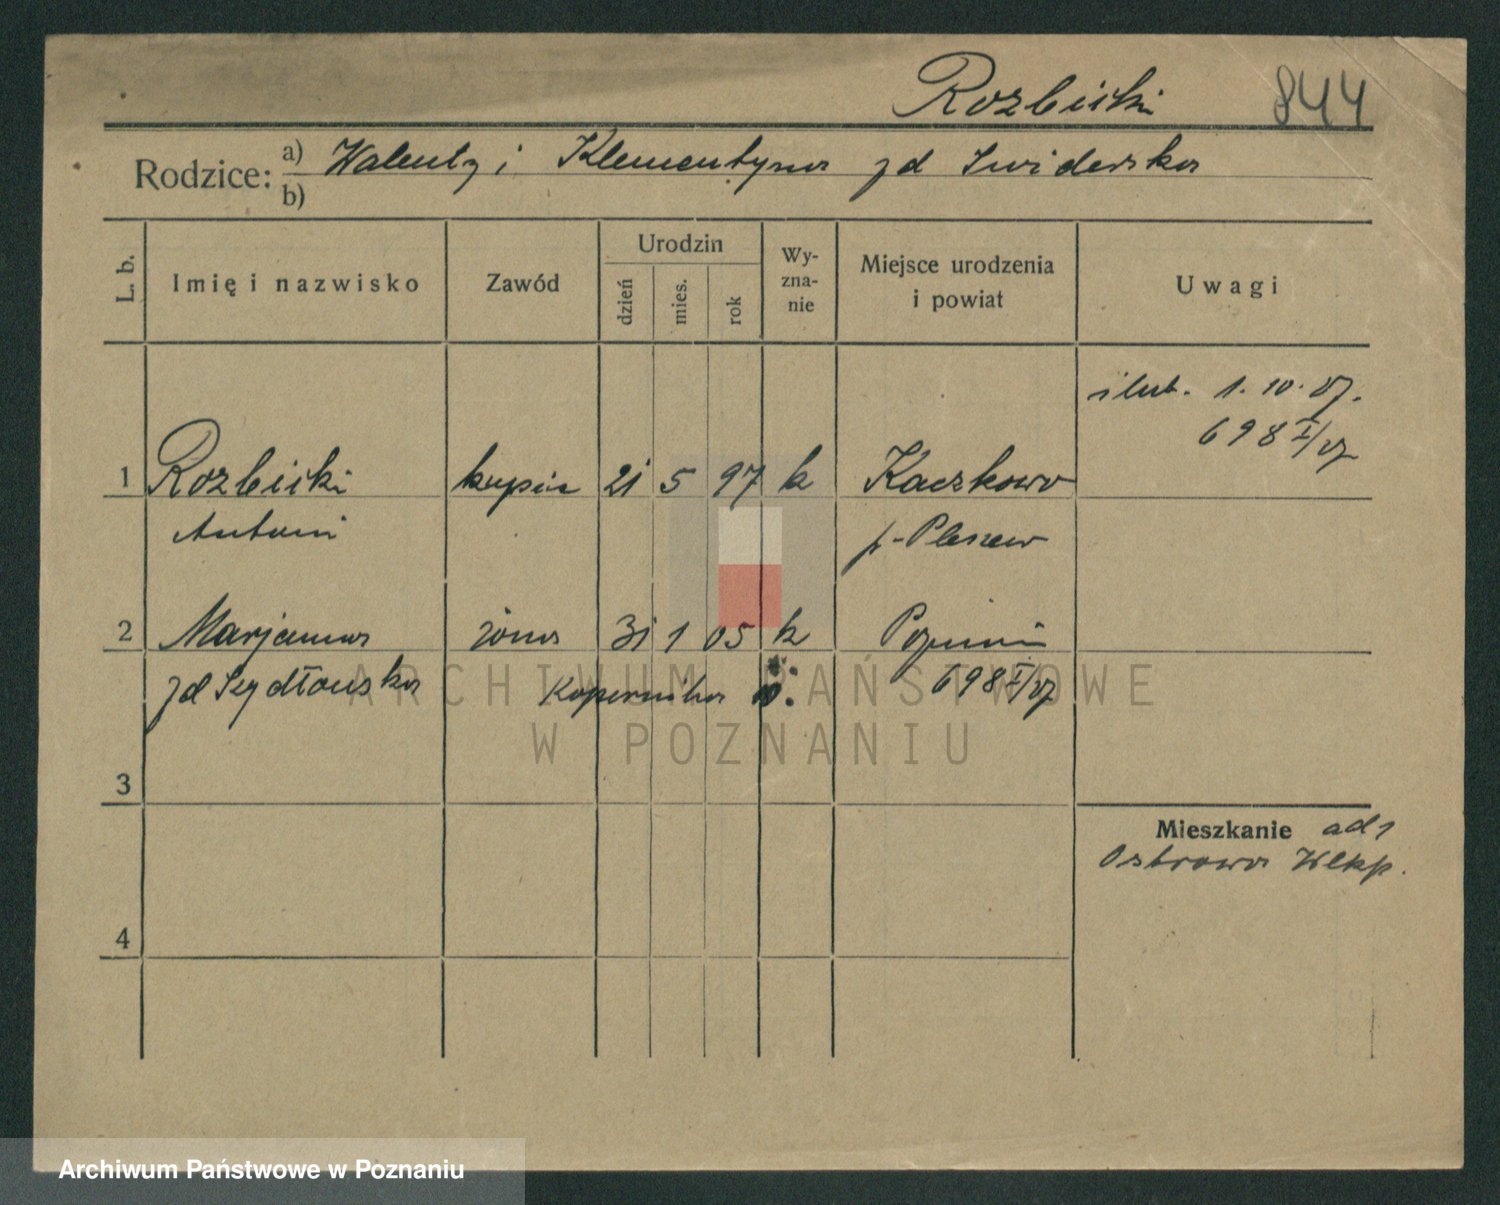 Rozbicki 844
Rodzice: a) Walenty i Klementyna zd Swiderska
b)
L. b. Imię i nazwisko Zawód Urodzin dzień mies. rok Wy-zna-nie Miejsce urodzenia i powiat Uwagi
ślub. 1. 10. 27.
698 I/27
1 Rozbicki kupiec 21 5 97 k Kaczkowo
Antoni p-Pleszew
2 Marjanna żona 31 1 05 k Poznań
zd Szydłowska Kopernika 698 I/27
3
Mieszkanie ad 1
Ostrowo Wlkp.
4
ARCHIWUM PAŃSTWOWE
W POZNANIU
Archiwum Państwowe w Poznaniu